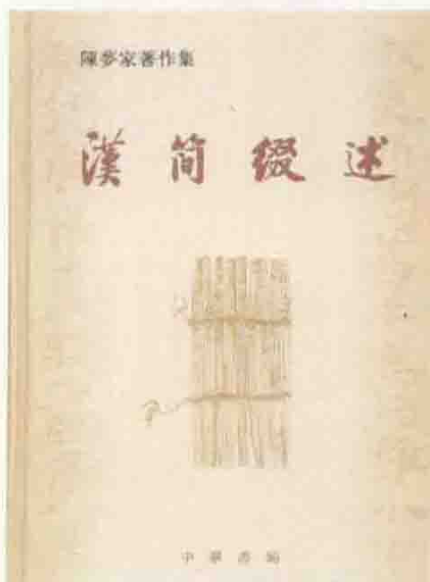 陳夢家著作集
漢簡綴述
中華書局